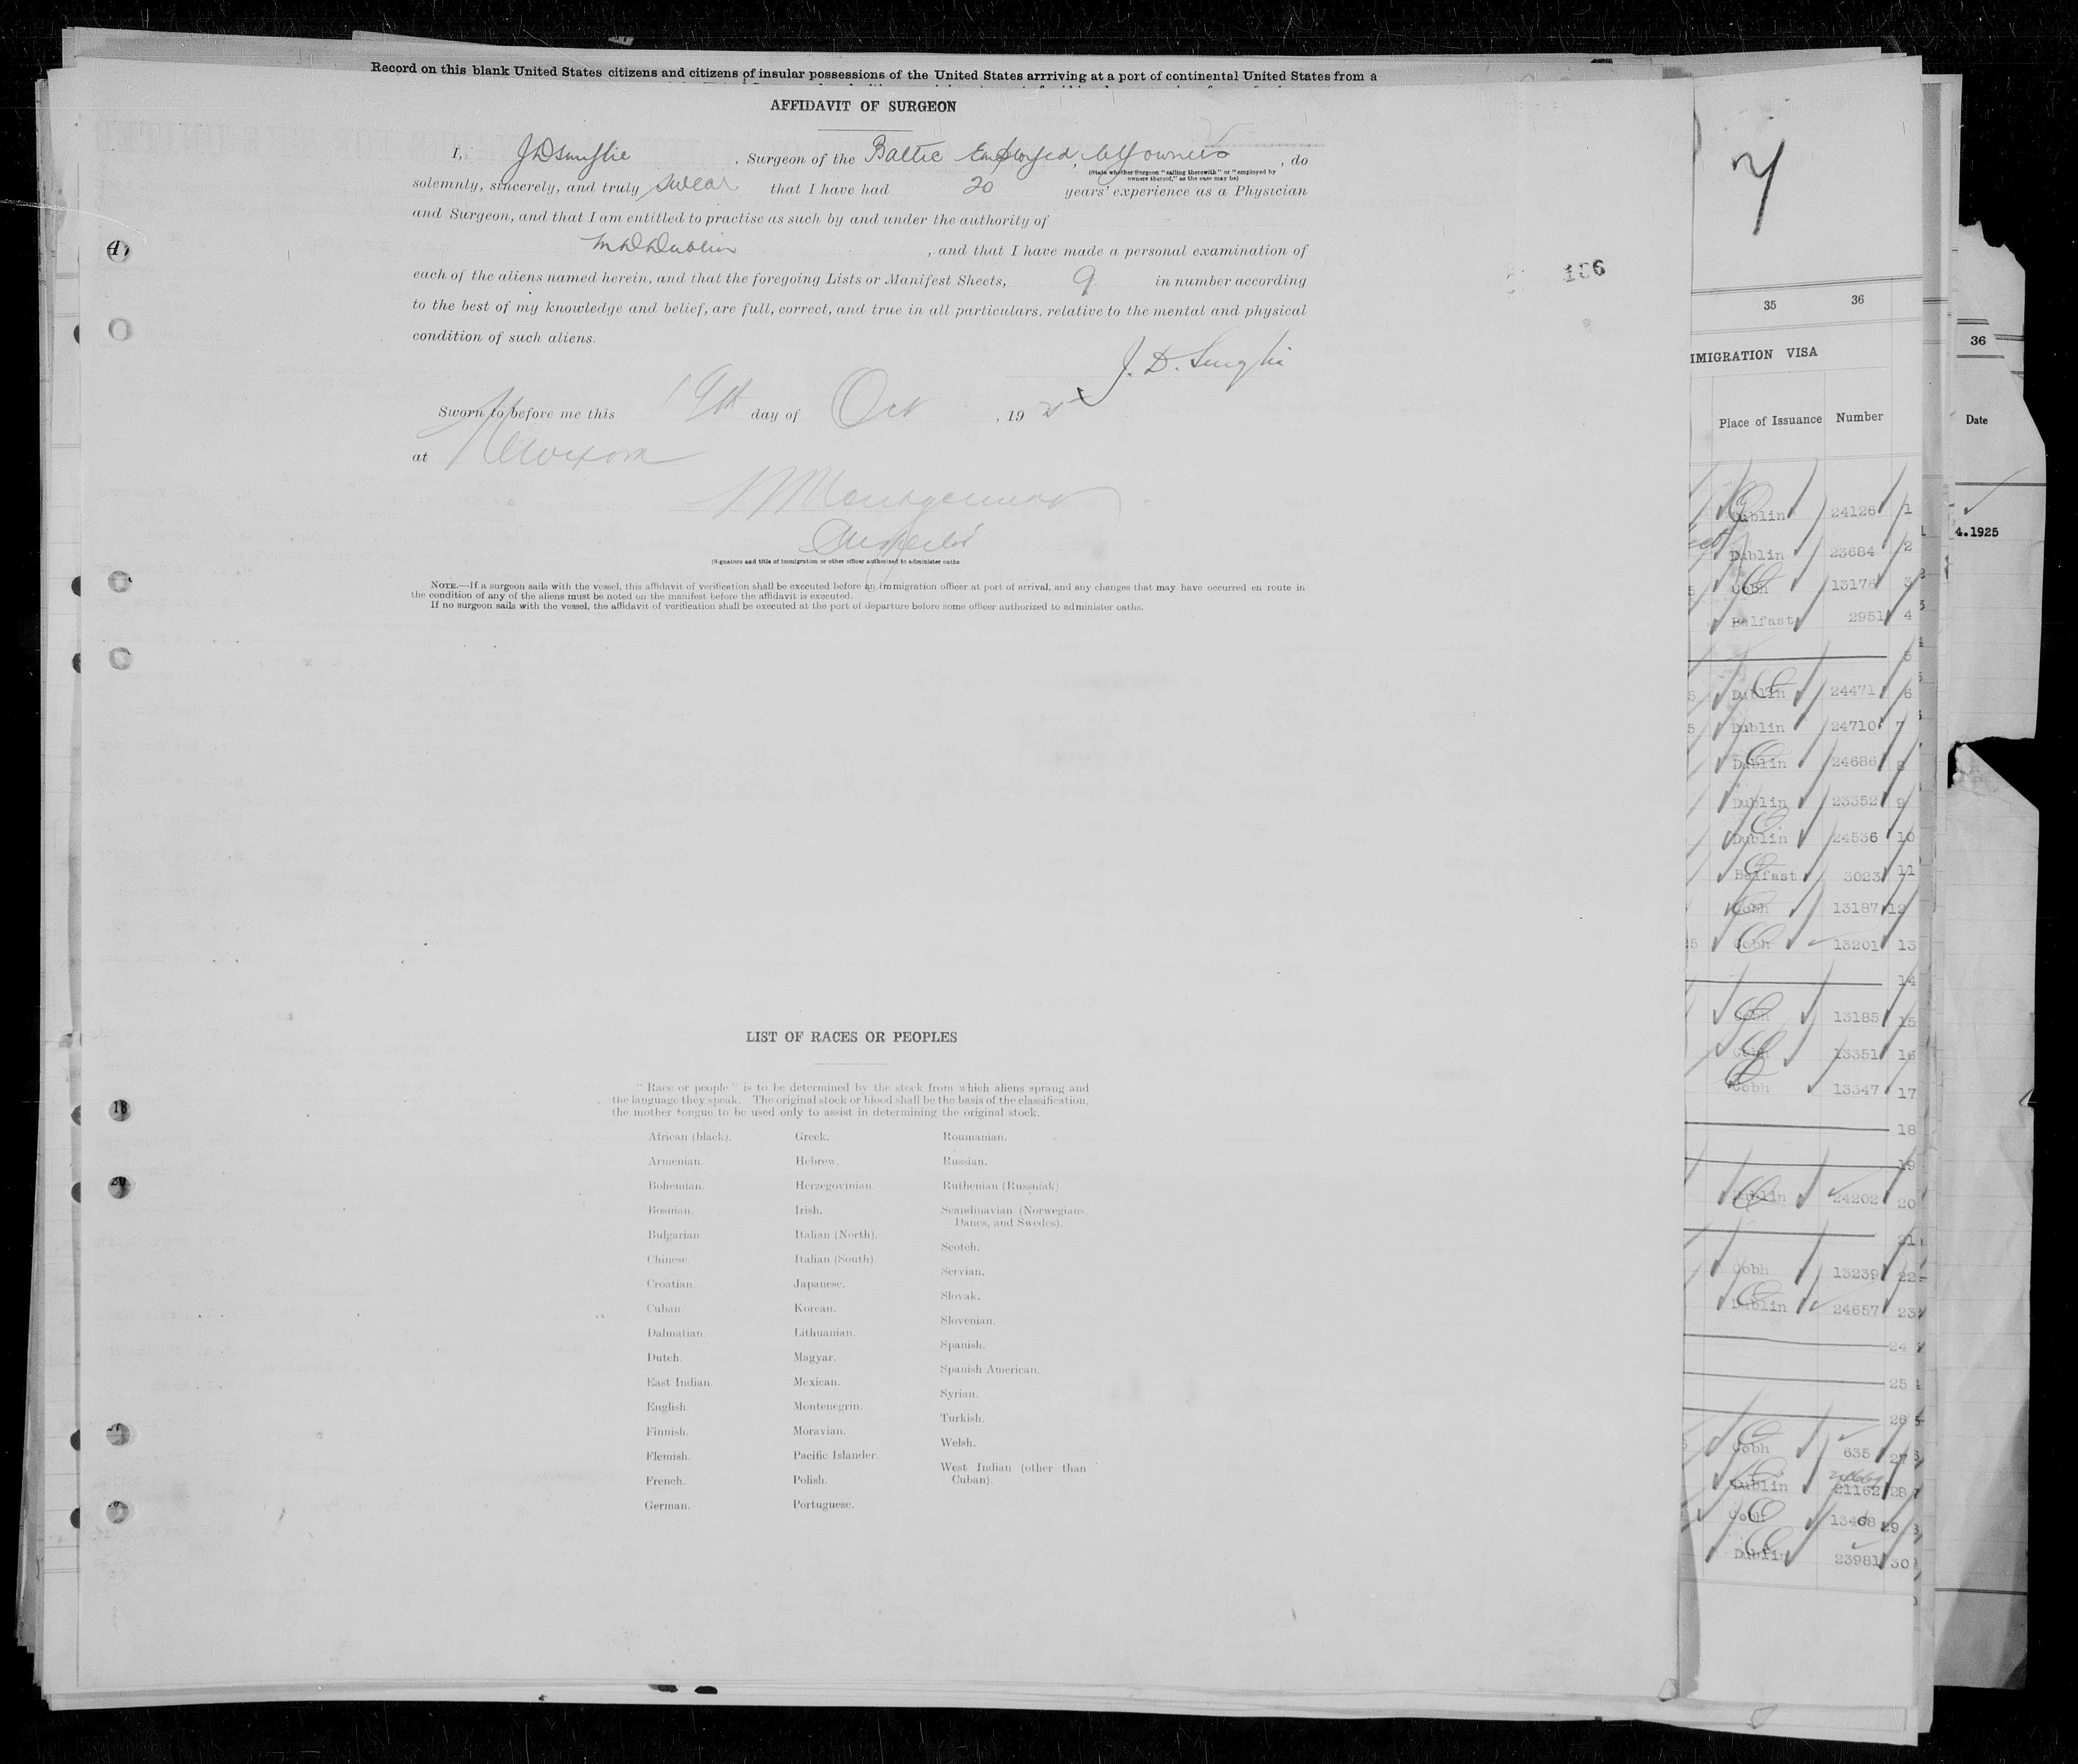 Record on this blank United States citizens and citizens of insular possessions of the United States arrriving at a port of continental United States from a
AFFIDAVIT OF SURGEON
I, , Surgeon of the Baltic Employed by owners , do
(State whether Surgeon "sailing therewith" or "employed by
owners thereof," as the case may be)
solemnly, sincerely, and truly swear that I have had 20 years' experience as a Physician
and Surgeon, and that I am entitled to practise as such by and under the authority of
M D Dublin , and that I have made a personal examination of
each of the aliens named herein, and that the foregoing Lists or Manifest Sheets, 9 in number according
to the best of my knowledge and belief, are full, correct, and true in all particulars, relative to the mental and physical
condition of such aliens.
J. D.
Sworn to before me this 19th day of Oct , 19 25
at New York
Montgomery
Inspector
(Signature and title of immigration or other officer authorized to administer oaths
NOTE.—If a surgeon sails with the vessel, this affidavit of verification shall be executed before an immigration officer at port of arrival, and any changes that may have occurred en route in
the condition of any of the aliens must be noted on the manifest before the affidavit is executed.
If no surgeon sails with the vessel, the affidavit of verification shall be executed at the port of departure before some officer authorized to administer oaths.
LIST OF RACES OR PEOPLES
"Race or people" is to be determined by the stock from which aliens sprang and
the language they speak. The original stock or blood shall be the basis of the classification,
the mother tongue to be used only to assist in determining the original stock.
African (black).
Armenian.
Bohemian.
Bosnian.
Bulgarian.
Chinese.
Croatian.
Cuban.
Dalmatian.
Dutch.
East Indian.
English.
Finnish.
Flemish.
French.
German.
Greek.
Hebrew.
Herzegovinian.
Irish.
Italian (North).
Italian (South).
Japanese.
Korean.
Lithuanian.
Magyar.
Mexican.
Montenegrin.
Moravian.
Pacific Islander.
Polish.
Portuguese.
Roumanian.
Russian.
Ruthenian (Russniak).
Scandinavian (Norwegians,
Danes, and Swedes).
Scotch.
Servian.
Slovak.
Slovenian.
Spanish.
Spanish American.
Syrian.
Turkish.
Welsh.
West Indian (other than
Cuban).
18
20
186
35 36
IMIGRATION VISA
Place of Issuance Number
Dublin 24126 1
Dublin 23684 2
Cobh 13176 3
Belfast 2951 4
5
Dublin 24471 6
Dublin 24710 7
Dublin 24686 8
Dublin 23352 9
Dublin 24536 10
Belfast 3023 11
Cobh 13187 12
Cobh 13201 13
14
Cobh 13185 15
Cobh 13351 16
Cobh 13347 17
18
19
Dublin 24202 20
21
Cobh 13239 22
Dublin 24657 23
24
25
26
Cobh 635 27
Dublin 21162 28
Cobh 13468 29
Dublin 23981 30
36
Date
4.1925